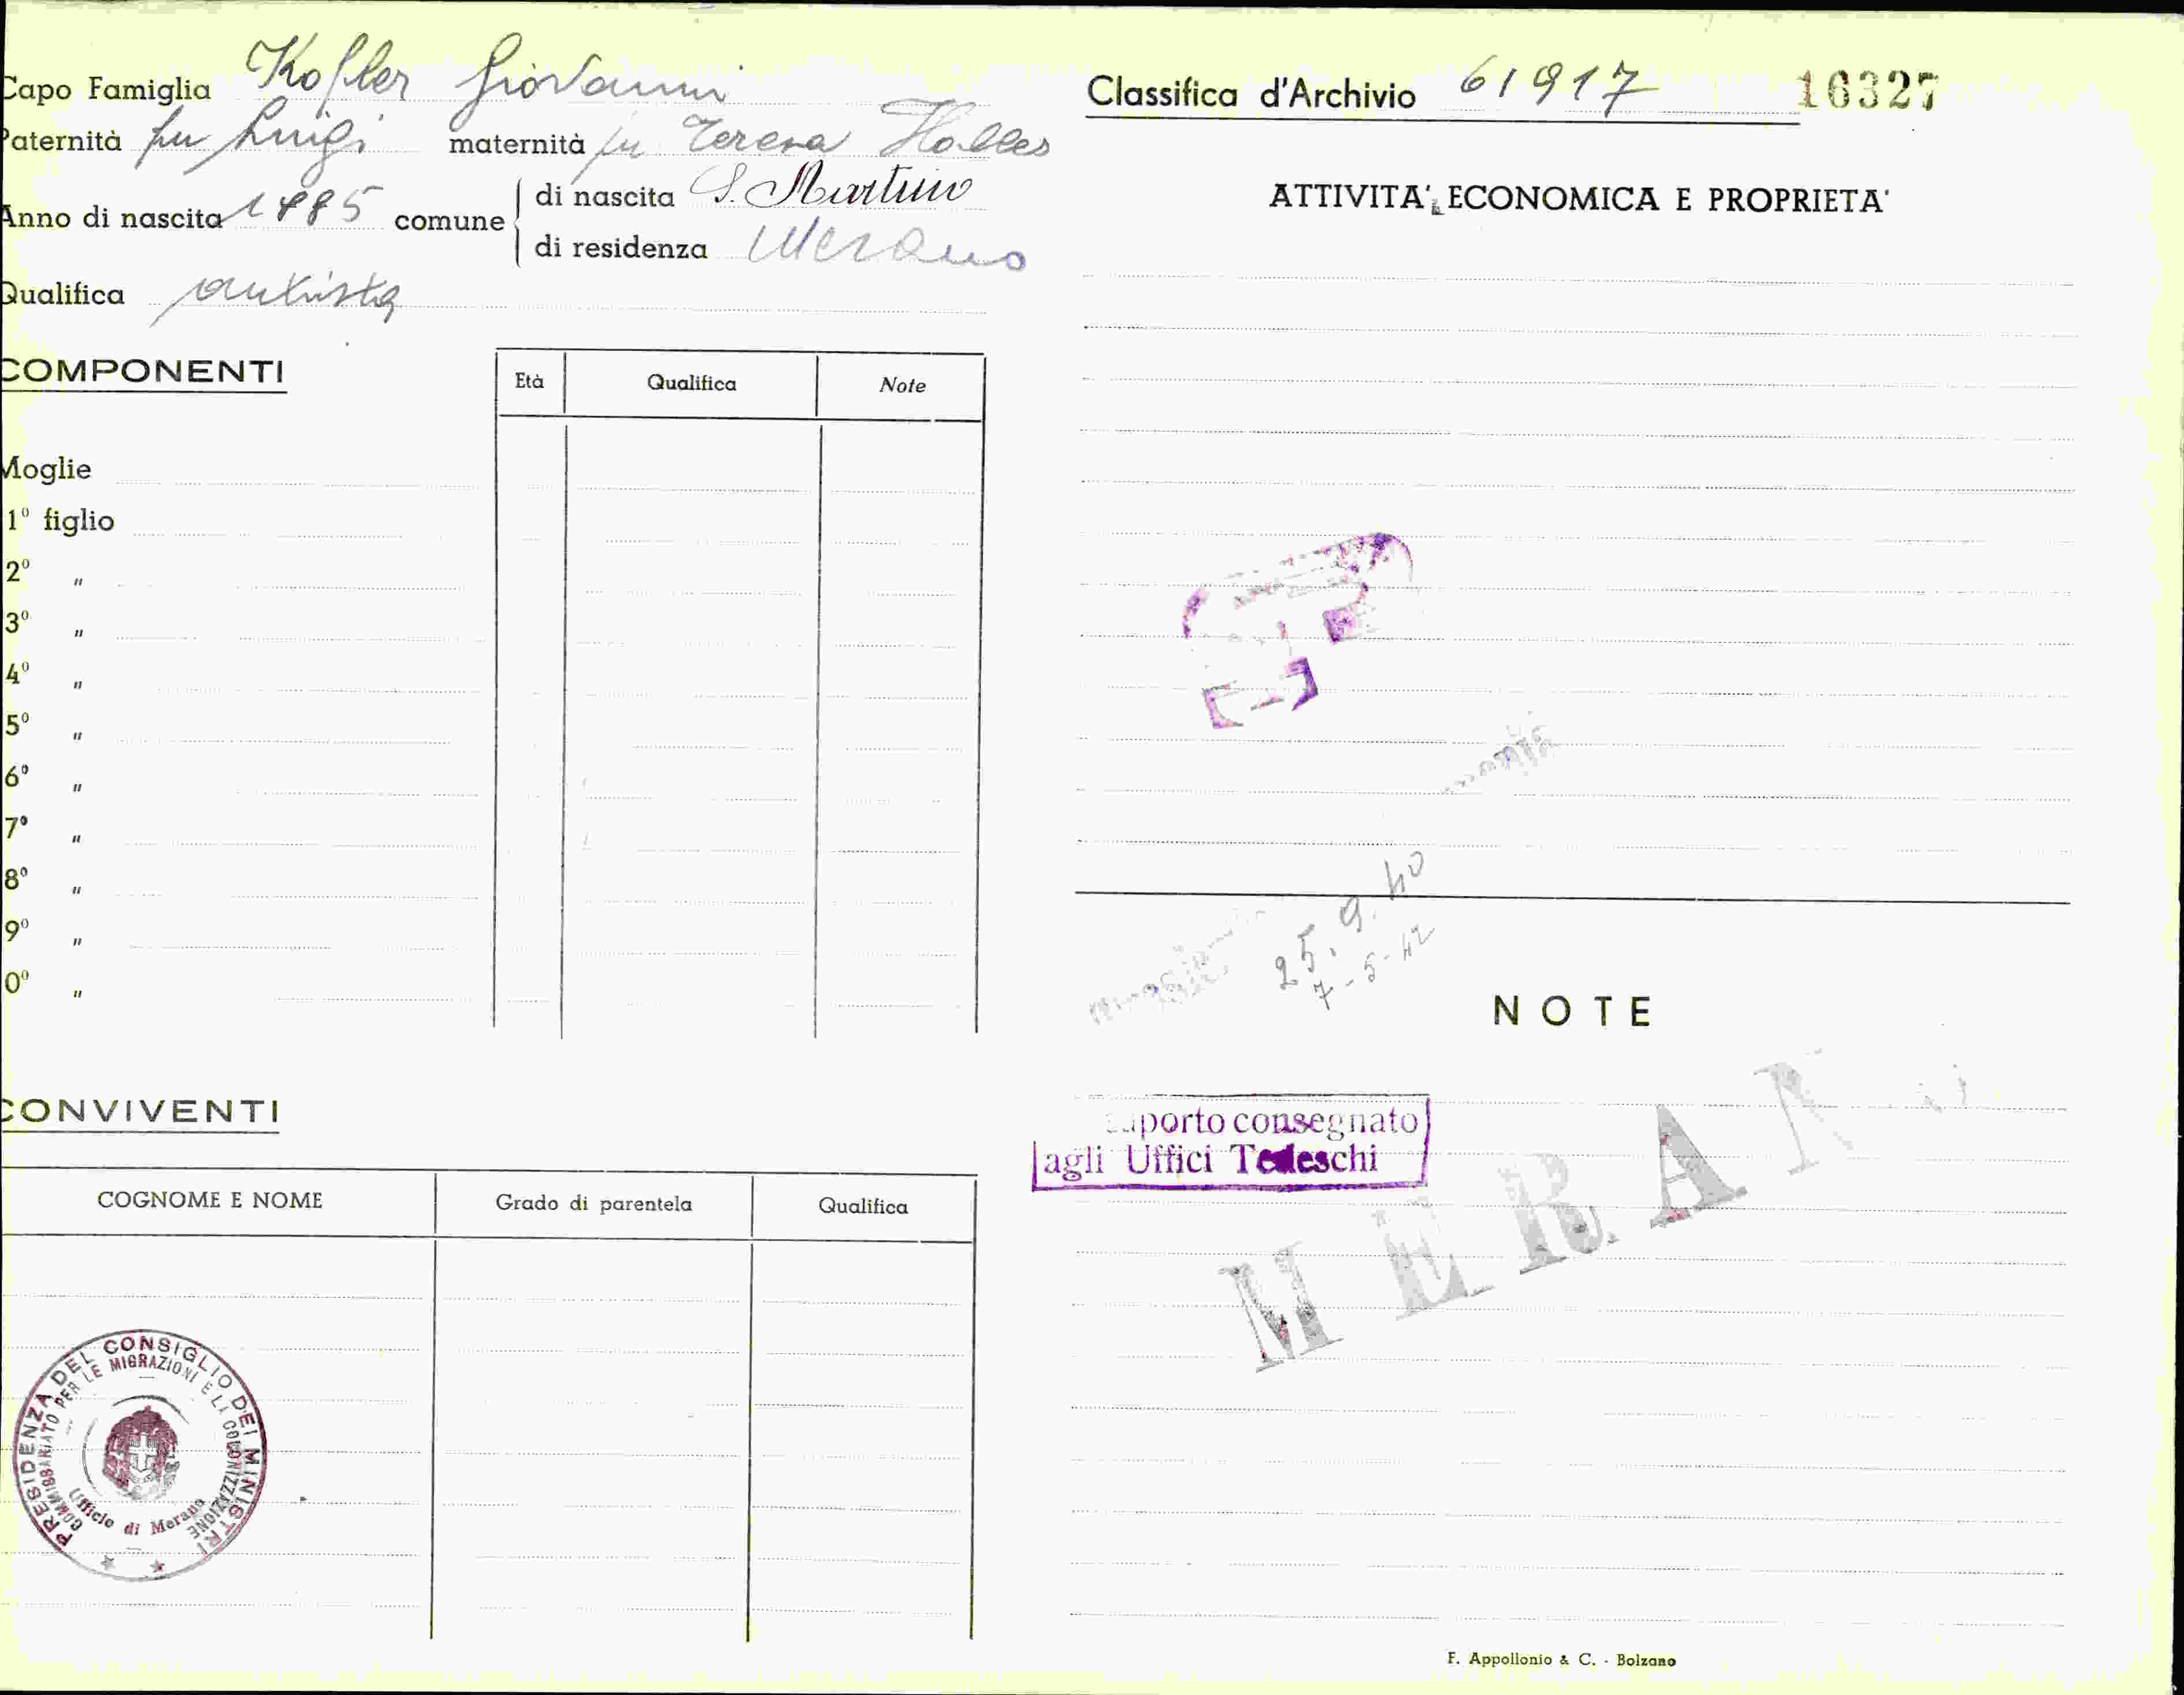 Capo Famiglia Kofler Giovanni
Paternità fu Luigi maternità fu Teresa Haller
Anno di nascita 1885 comune di nascita S. Martino
di residenza Merano
Qualifica autista
COMPONENTI
Età Qualifica Note
Moglie
1º figlio
2º "
3º "
4º "
5º "
6º "
7º "
8º "
9º "
0º "
CONVIVENTI
COGNOME E NOME Grado di parentela Qualifica
PRESIDENZA DEL CONSIGLIO DEI MINISTRI
COMMISSARIATO PER LE MIGRAZIONI E LA COLONIZZAZIONE
Ufficio di Merano
Classifica d'Archivio 61917 16327
ATTIVITA' ECONOMICA E PROPRIETA'
25.9.40
7-5-42
NOTE
porto consegnato
agli Uffici Tedeschi
MERANO
F. Appollonio & C. - Bolzano